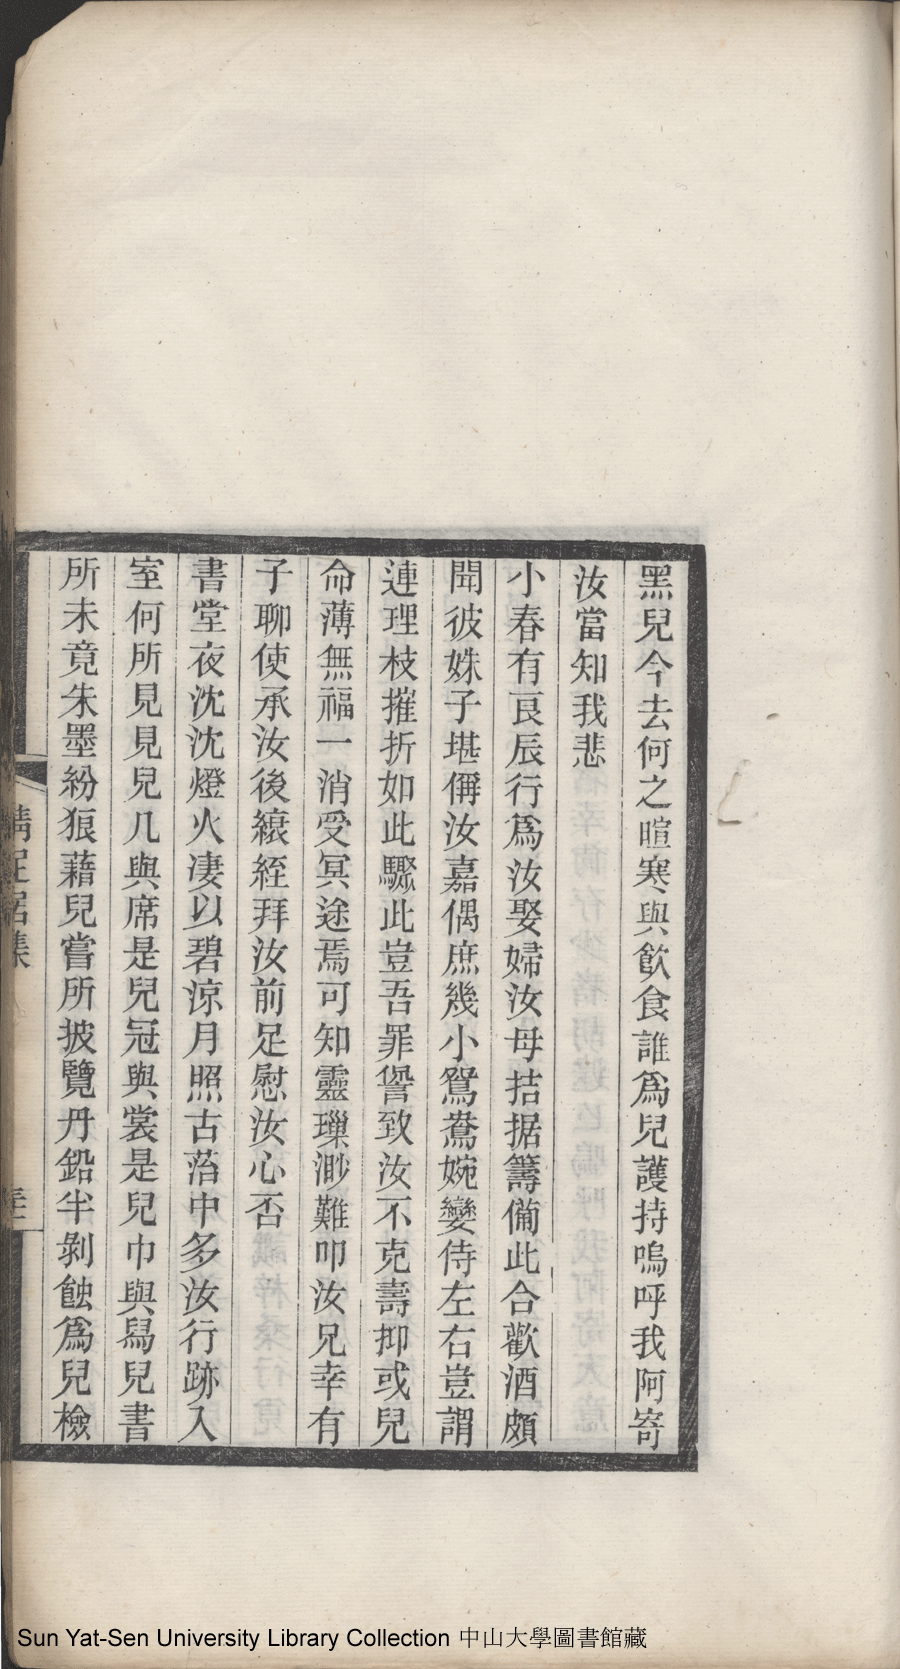 黑兒今去何之暄寒與飲食誰爲兒護持嗚呼我阿寄
汝當知我悲
小春有良辰行爲汝娶婦汝母拮据籌備此合歡酒頗
聞彼姝子堪偁汝嘉偶庶幾小鴛鴦婉孌侍左右豈謂
連理枝摧折如此驟此豈吾罪諐致汝不克壽抑或兒
命薄無福一消受冥途焉可知靈璅渺難叩汝兄幸有
子聊使承汝後縗絰拜汝前足慰汝心否
書堂夜沈沈燈火凄以碧涼月照古菭中多汝行跡入
室何所見見兒几與席是兒冠與裳是兒巾與舃兒書
所未竟朱墨紛狼藉兒嘗所披覽丹鉛半剝蝕爲兒檢
居集
Sun Yat-Sen University Library Collection 中山大學圖書館藏